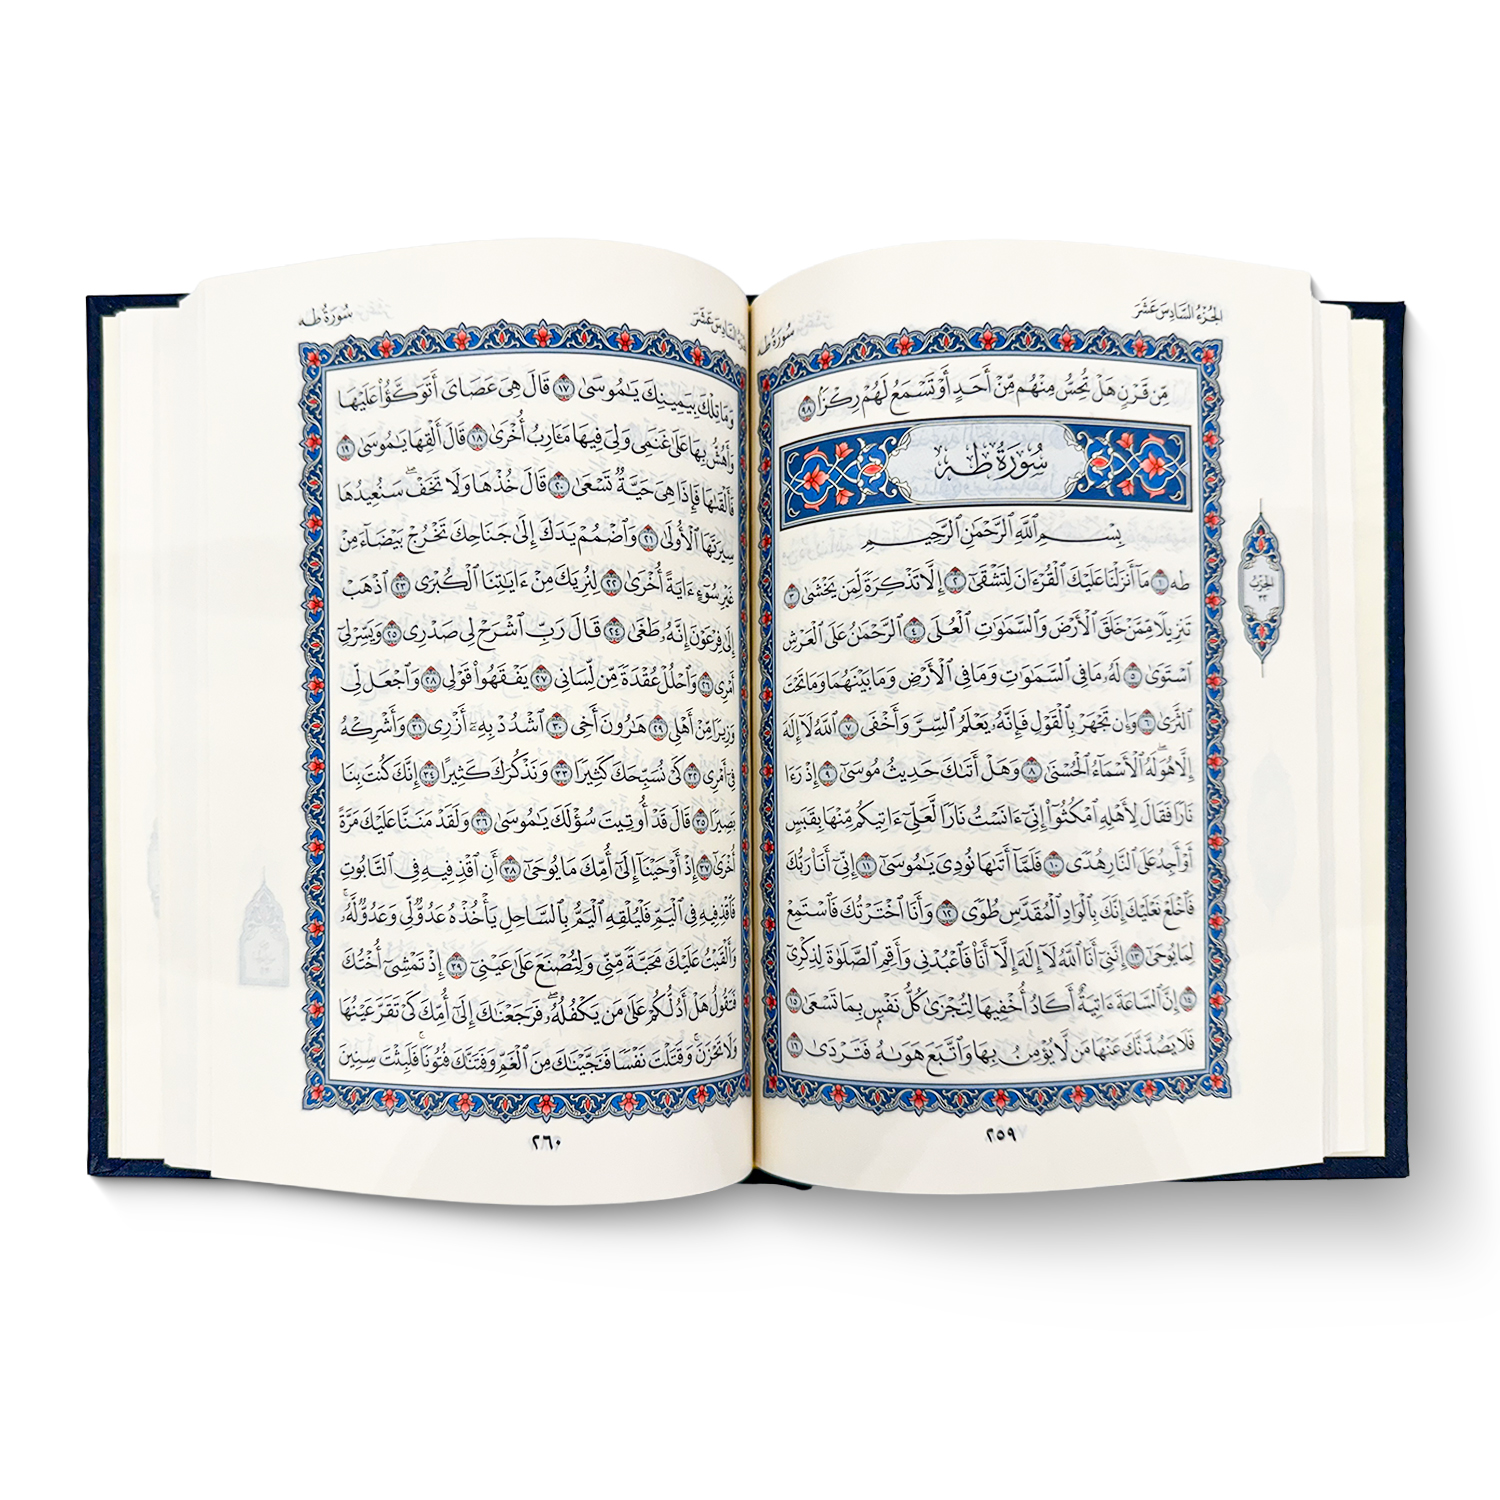 الجزء السادس عشر
سورة طه
مِّن قَرْنٍ هَلْ تُحِسُّ مِنْهُم مِّنْ أَحَدٍ أَوْ تَسْمَعُ لَهُمْ رِكْزًا ٩٨
سُورَةُ طه
بِسْمِ ٱللَّهِ ٱلرَّحْمَٰنِ ٱلرَّحِيمِ
طه ١ مَآ أَنزَلْنَا عَلَيْكَ ٱلْقُرْءَانَ لِتَشْقَىٰٓ ٢ إِلَّا تَذْكِرَةً لِّمَن يَخْشَىٰ ٣
تَنزِيلًا مِّمَّنْ خَلَقَ ٱلْأَرْضَ وَٱلسَّمَٰوَٰتِ ٱلْعُلَى ٤ ٱلرَّحْمَٰنُ عَلَى ٱلْعَرْشِ
ٱسْتَوَىٰ ٥ لَهُۥ مَا فِى ٱلسَّمَٰوَٰتِ وَمَا فِى ٱلْأَرْضِ وَمَا بَيْنَهُمَا وَمَا تَحْتَ
ٱلثَّرَىٰ ٦ وَإِن تَجْهَرْ بِٱلْقَوْلِ فَإِنَّهُۥ يَعْلَمُ ٱلسِّرَّ وَأَخْفَى ٧ ٱللَّهُ لَآ إِلَٰهَ
إِلَّا هُوَ ۖ لَهُ ٱلْأَسْمَآءُ ٱلْحُسْنَىٰ ٨ وَهَلْ أَتَىٰكَ حَدِيثُ مُوسَىٰٓ ٩ إِذْ رَءَا
نَارًا فَقَالَ لِأَهْلِهِ ٱمْكُثُوٓا۟ إِنِّىٓ ءَانَسْتُ نَارًا لَّعَلِّىٓ ءَاتِيكُم مِّنْهَا بِقَبَسٍ
أَوْ أَجِدُ عَلَى ٱلنَّارِ هُدًى ١٠ فَلَمَّآ أَتَىٰهَا نُودِىَ يَٰمُوسَىٰٓ ١١ إِنِّىٓ أَنَا۠ رَبُّكَ
فَٱخْلَعْ نَعْلَيْكَ إِنَّكَ بِٱلْوَادِ ٱلْمُقَدَّسِ طُوًى ١٢ وَأَنَا ٱخْتَرْتُكَ فَٱسْتَمِعْ
لِمَا يُوحَىٰٓ ١٣ إِنَّنِىٓ أَنَا ٱللَّهُ لَآ إِلَٰهَ إِلَّآ أَنَا۠ فَٱعْبُدْنِى وَأَقِمِ ٱلصَّلَوٰةَ لِذِكْرِىٓ
١٤ إِنَّ ٱلسَّاعَةَ ءَاتِيَةٌ أَكَادُ أُخْفِيهَا لِتُجْزَىٰ كُلُّ نَفْسٍۭ بِمَا تَسْعَىٰ ١٥
فَلَا يَصُدَّنَّكَ عَنْهَا مَن لَّا يُؤْمِنُ بِهَا وَٱتَّبَعَ هَوَىٰهُ فَتَرْدَىٰ ١٦
الحزب
٣٢
٢٥٩
سورة طه
وَمَا تِلْكَ بِيَمِينِكَ يَٰمُوسَىٰ ١٧ قَالَ هِىَ عَصَاىَ أَتَوَكَّؤُا۟ عَلَيْهَا
وَأَهُشُّ بِهَا عَلَىٰ غَنَمِى وَلِىَ فِيهَا مَـَٔارِبُ أُخْرَىٰ ١٨ قَالَ أَلْقِهَا يَٰمُوسَىٰ ١٩
فَأَلْقَىٰهَا فَإِذَا هِىَ حَيَّةٌ تَسْعَىٰ ٢٠ قَالَ خُذْهَا وَلَا تَخَفْ ۖ سَنُعِيدُهَا
سِيرَتَهَا ٱلْأُولَىٰ ٢١ وَٱضْمُمْ يَدَكَ إِلَىٰ جَنَاحِكَ تَخْرُجْ بَيْضَآءَ مِنْ
غَيْرِ سُوٓءٍ ءَايَةً أُخْرَىٰ ٢٢ لِنُرِيَكَ مِنْ ءَايَٰتِنَا ٱلْكُبْرَى ٢٣ ٱذْهَبْ
إِلَىٰ فِرْعَوْنَ إِنَّهُۥ طَغَىٰ ٢٤ قَالَ رَبِّ ٱشْرَحْ لِى صَدْرِى ٢٥ وَيَسِّرْ لِىٓ
أَمْرِى ٢٦ وَٱحْلُلْ عُقْدَةً مِّن لِّسَانِى ٢٧ يَفْقَهُوا۟ قَوْلِى ٢٨ وَٱجْعَل لِّى
وَزِيرًا مِّنْ أَهْلِى ٢٩ هَٰرُونَ أَخِى ٣٠ ٱشْدُدْ بِهِۦٓ أَزْرِى ٣١ وَأَشْرِكْهُ
فِىٓ أَمْرِى ٣٢ كَىْ نُسَبِّحَكَ كَثِيرًا ٣٣ وَنَذْكُرَكَ كَثِيرًا ٣٤ إِنَّكَ كُنتَ بِنَا
بَصِيرًا ٣٥ قَالَ قَدْ أُوتِيتَ سُؤْلَكَ يَٰمُوسَىٰ ٣٦ وَلَقَدْ مَنَنَّا عَلَيْكَ مَرَّةً
أُخْرَىٰٓ ٣٧ إِذْ أَوْحَيْنَآ إِلَىٰٓ أُمِّكَ مَا يُوحَىٰٓ ٣٨ أَنِ ٱقْذِفِيهِ فِى ٱلتَّابُوتِ
فَٱقْذِفِيهِ فِى ٱلْيَمِّ فَلْيُلْقِهِ ٱلْيَمُّ بِٱلسَّاحِلِ يَأْخُذْهُ عَدُوٌّ لِّى وَعَدُوٌّ لَّهُۥ ۚ
وَأَلْقَيْتُ عَلَيْكَ مَحَبَّةً مِّنِّى وَلِتُصْنَعَ عَلَىٰ عَيْنِىٓ ٣٩ إِذْ تَمْشِىٓ أُخْتُكَ
فَتَقُولُ هَلْ أَدُلُّكُمْ عَلَىٰ مَن يَكْفُلُهُۥ ۖ فَرَجَعْنَٰكَ إِلَىٰٓ أُمِّكَ كَىْ تَقَرَّ عَيْنُهَا
وَلَا تَحْزَنَ ۚ وَقَتَلْتَ نَفْسًا فَنَجَّيْنَٰكَ مِنَ ٱلْغَمِّ وَفَتَنَّٰكَ فُتُونًا ۚ فَلَبِثْتَ سِنِينَ
٢٦٠